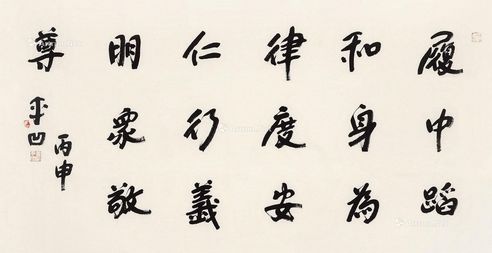 履中蹈
和身為
律度安
仁行義
明衆敬
尊
丙申
平凹